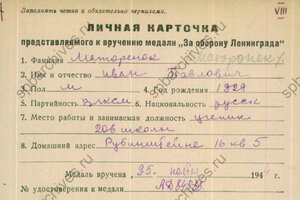 Заполнять четко и обязательно чернилами.
VIII
ЛИЧНАЯ КАРТОЧКА
представляемого к вручению медали „За оборону Ленинграда"
1. Фамилия Маторенок
2. Имя и отчество Иван Павлович
3. Пол м 4. Год рождения 1929
5. Партийность Влксм 6. Национальность русск
7. Место работы и занимаемая должность ученик
206 школы
8. Домашний адрес Рубинштейна 16 кв 5
Медаль вручена 25. ноября 194
№ удостоверения к медали
spbarchives.ru